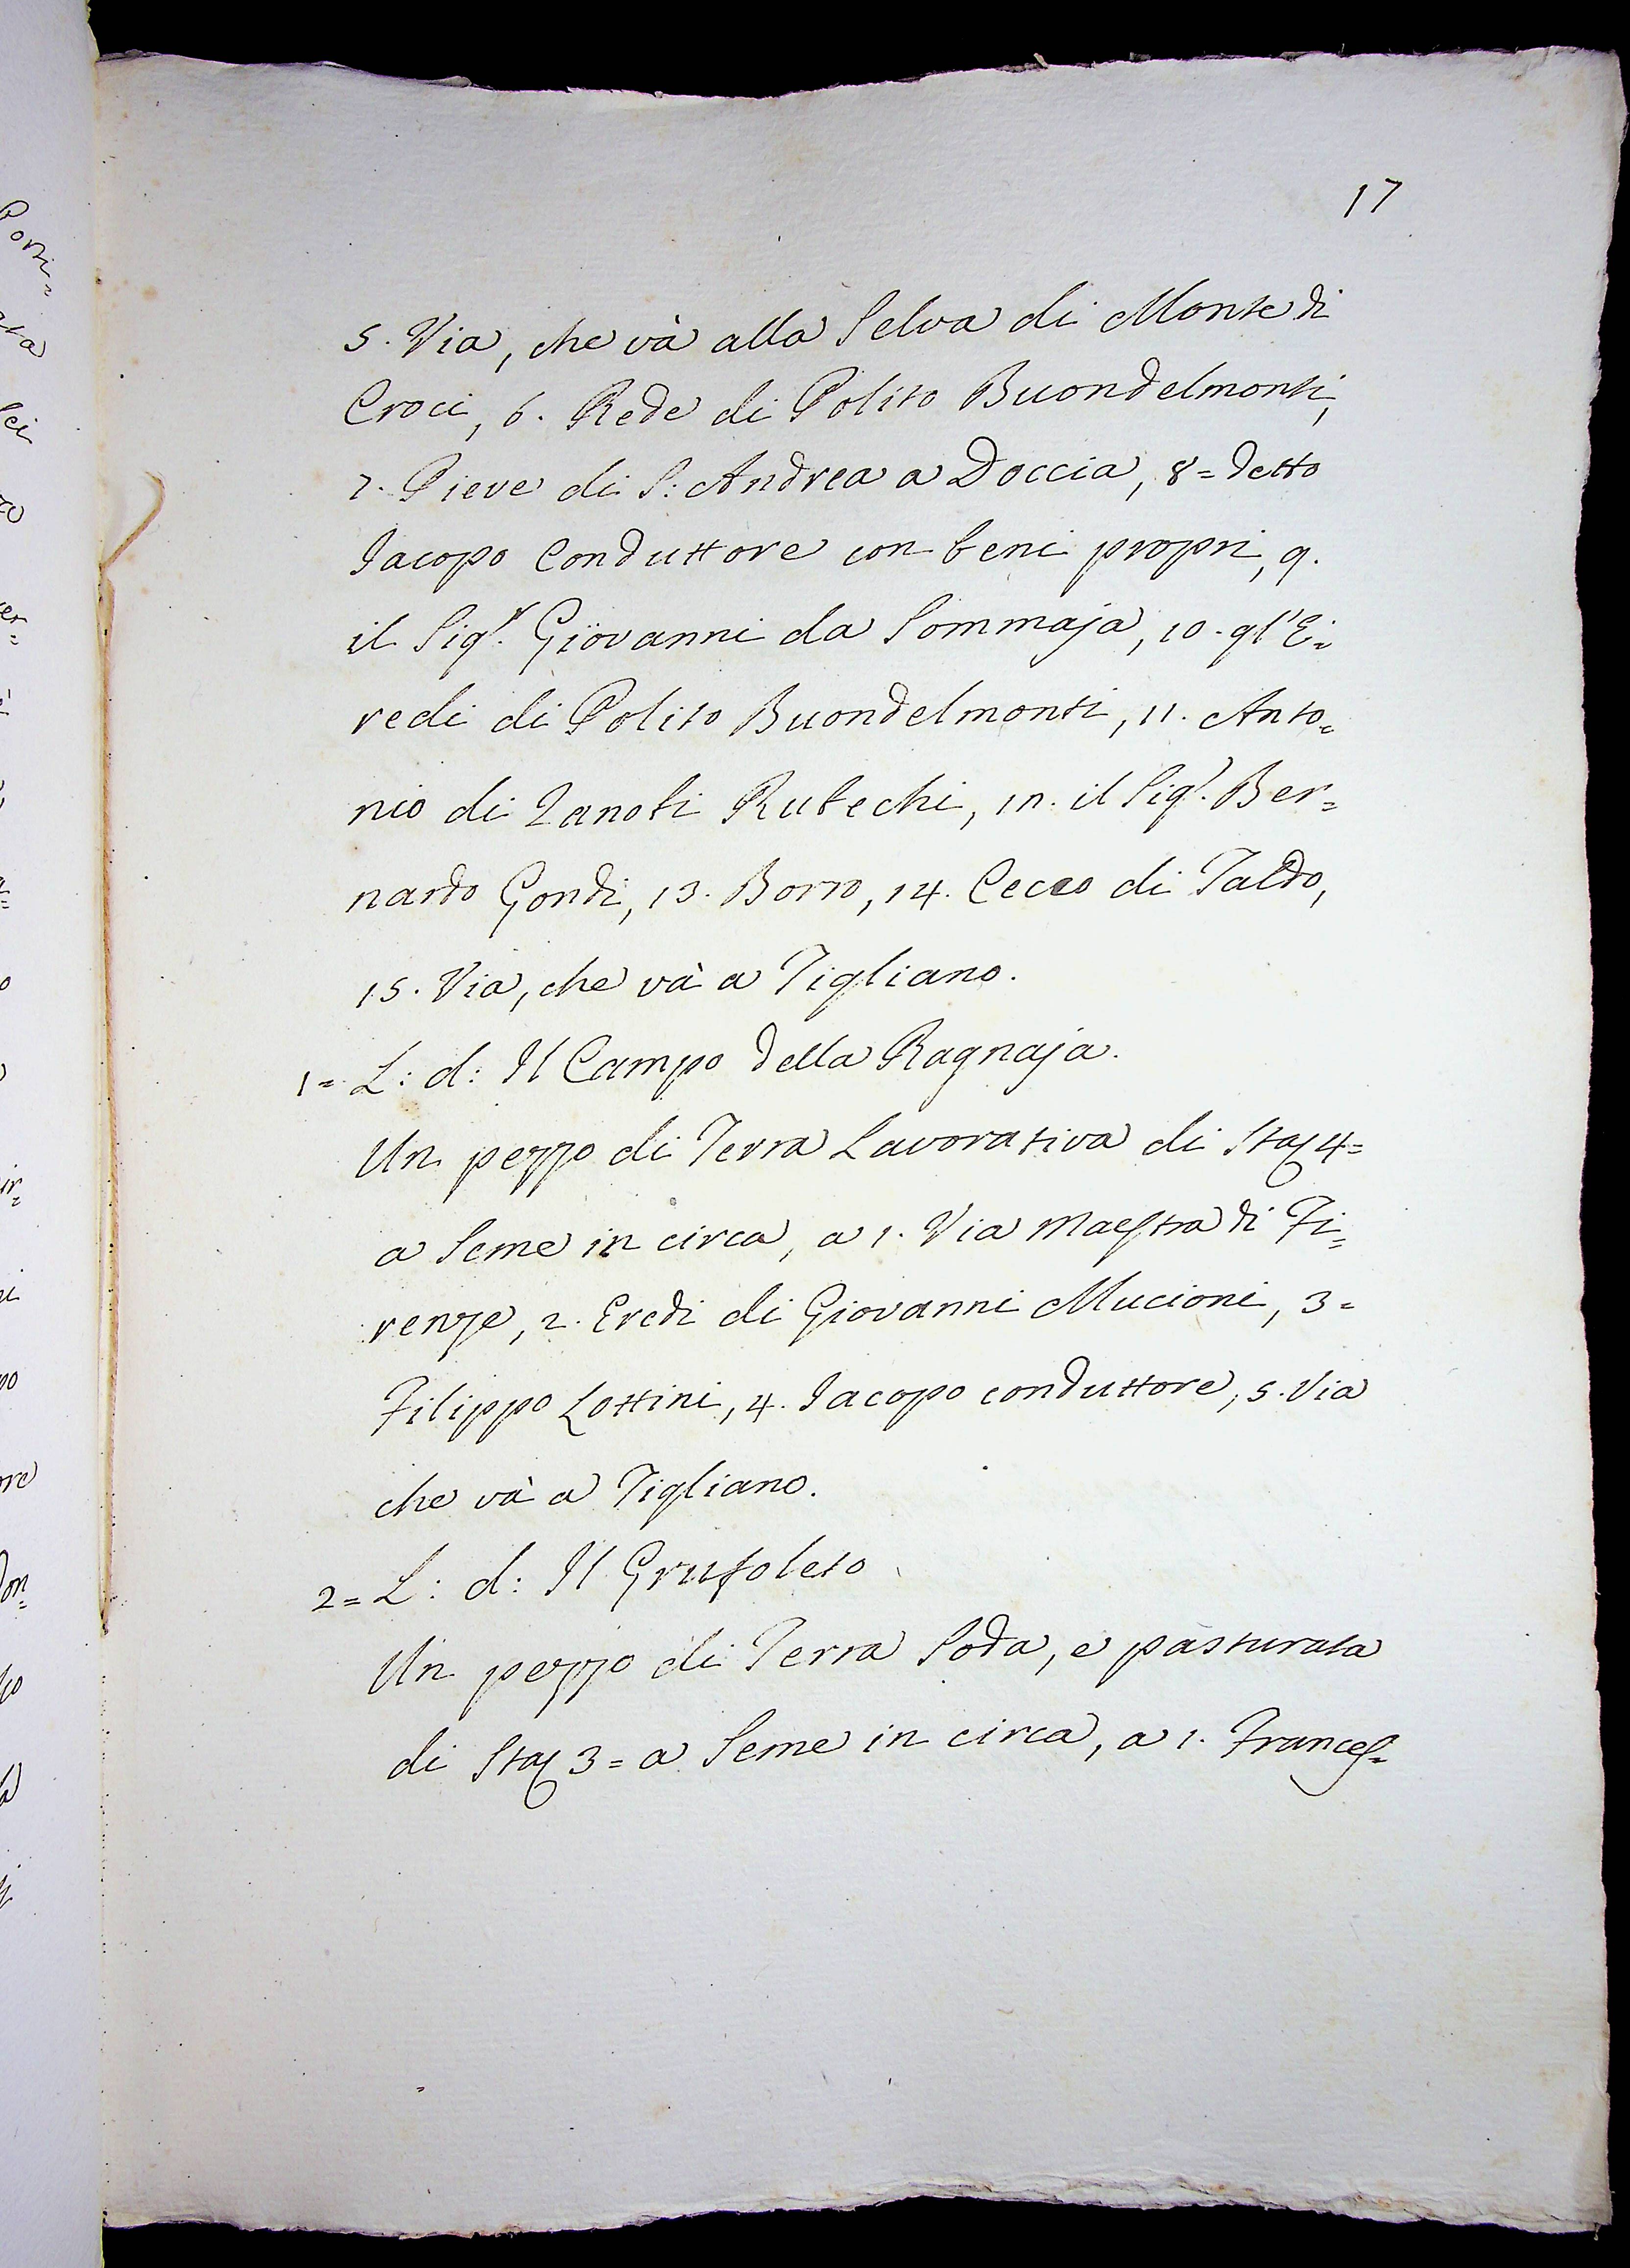 17
5. Via, che và alla Selva di Monte di
Croci, 6. Rede di Polito Buondelmonti,
7. Pieve di S: Andrea a Doccia, 8= detto
Jacopo Conduttore con beni propri, 9.
il Sigr. Giovanni da Sommaja, 10. gl'E=
redi di Polito Buondelmonti, 11. Anto=
nio di Zanobi Rubechi, 12. il Sigr. Ber=
nardo Gondi, 13. Borro, 14. Cecco di Taldo,
15. Via, che và a Tigliano.
1= L: d: Il Campo della Ragnaja.
Un pezzo di Terra Lavorativa di Sta 4=
a Seme in circa, a 1. Via Maestra di Fi=
renze, 2. Eredi di Giovanni Mucioni, 3=
Filippo Lottini, 4. Jacopo conduttore, 5. Via
che và a Tigliano.
2= L: d: Il Grufoleto
Un pezzo di Terra Soda, e pasturata
di Sta 3= a Seme in circa, a 1. Frances=